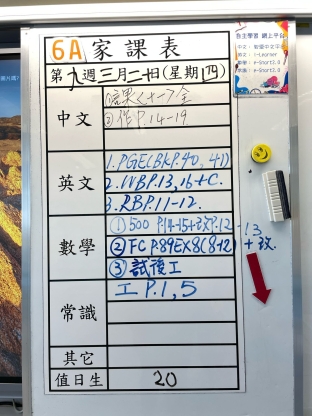 6A家課表
第九週三月二十日(星期四)
中文
②作P.14-19
英文
1. PGE(BK P.40, 41)
2. WBP.13, 16+C.
3. RBP.11-12.
數學
① 500 P.14-15+改P.12-13
② FC P.89EX8(8-12)+改.
③ 試後工
常識
工 P.1, 5
其它
值日生
20
自主學習 網上平台